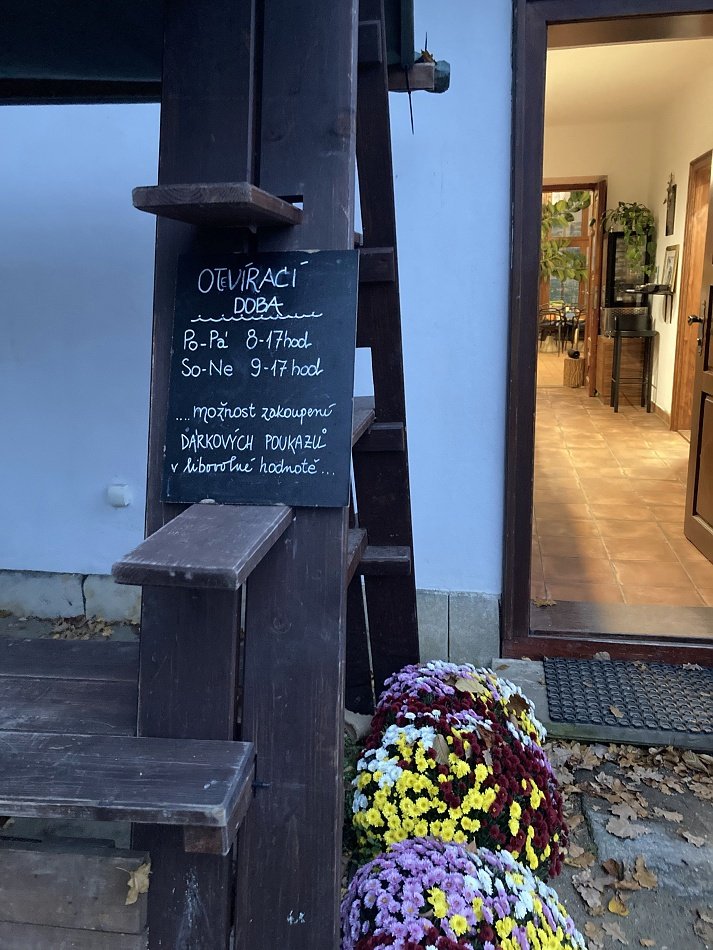 OTEVÍRACÍ
DOBA
Po-Pá 8-17hod
So-Ne 9-17hod
....možnost zakoupení
DÁRKOVÝCH POUKAZŮ
v libovolné hodnotě...